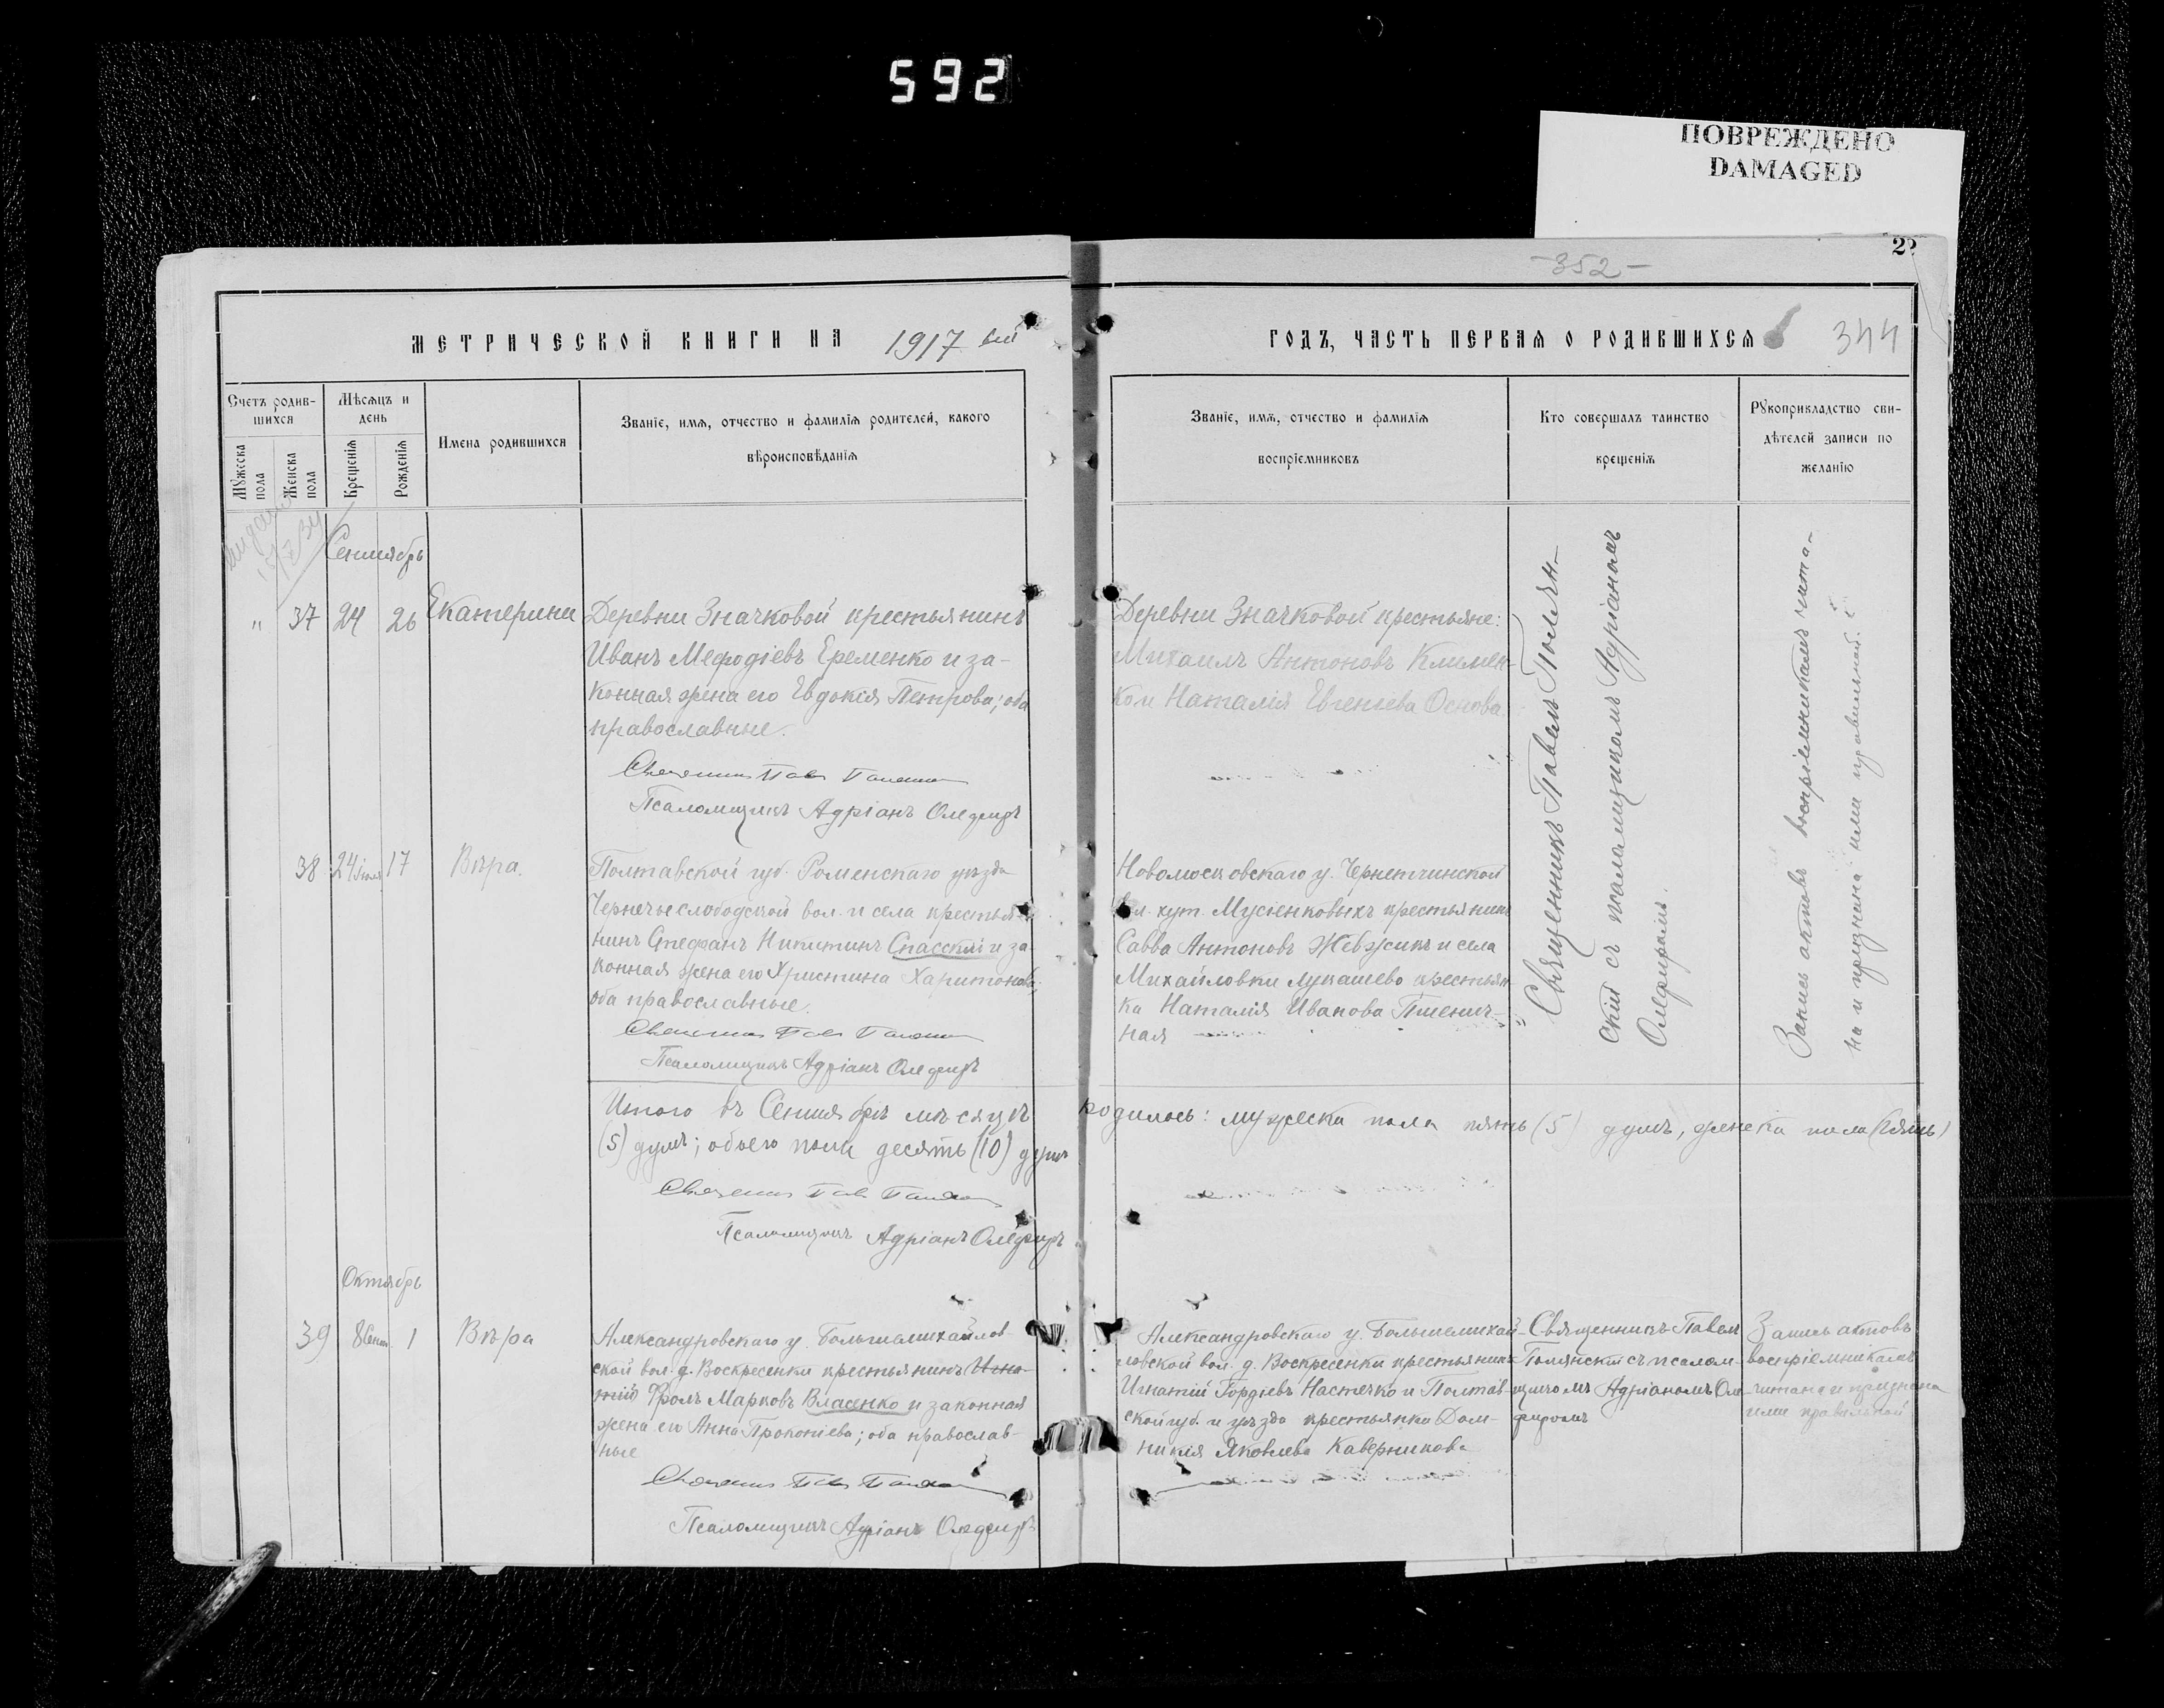 592
ПОВРЕЖДЕНО
DAMAGED
-352-
МЕТРИЧЕСКОЙ КНИГИ НА 1917 ый
ГОДЪ, ЧАСТЬ ПЕРВАЯ О РОДИВШИХСЯ
344
Счетъ родив-
шихся
Мужеска
пола
Женска
пола
Мѣсяцъ и
день
Крещенія
Рожденія
Имена родившихся
Званіе, имя, отчество и фамилія родителей, какого
вѣроисповѣданія
Званіе, имя, отчество и фамилія
воспріемниковъ
Кто совершалъ таинство
крещенія
Рукоприкладство сви-
дѣтелей записи по
желанію
Сентябрь
" 37 24 26 Екатерина
Деревни Значковой крестьянинъ
Иванъ Мефодіевъ Еременко и за-
конная жена его Евдокія Петрова; оба
православные.
Псаломщикъ Адріанъ
Деревни Значковой крестьяне:
Михаилъ Антоновъ Климен-
ко и Наталія Евгеніева Основа
Священникъ Павелъ Полян-
скій съ псаломщикомъ Адріаномъ
Запись актовъ воспріемникамъ чита-
на и признана ими правильной
38 24 17 Вѣра.
Полтавской губ. Роменскаго уѣзда
Чернечьеслободской вол. и села крестья-
нинъ Стефанъ Никитинъ Спасскій и за
конная жена его Христина Харитонова;
оба православные.
Псаломщикъ Адріанъ
Новомосковскаго у. Чернетчинской
вол. хут. Мусіенковыхъ крестьянинъ
Савва Антоновъ Жебжикъ и села
Михайловки Лукашево крестьян-
ка Наталія Иванова Пшенич-
ная
Итого въ Сентябрѣ мѣсяцѣ родилось: мужеска пола пять (5) душъ, женска пола (пять)
(5) душъ; обоего пола десять (10) душъ
Псаломщикъ Адріанъ
Октябрь
39 8 1 Вѣра
Александровскаго у. Большемихайлов-
ской вол. д. Воскресенки крестьянинъ Игна-
тій Фролъ Марковъ Власенко и законная
жена его Анна Прокопіева; оба православ-
ные
Псаломщикъ Адріанъ
Александровскаго у. Большемихай-
ловской вол. д. Воскресенки крестьянинъ
Игнатій Гордіевъ Настечко и Полтав-
ской губ. и уѣзда крестьянка Дом-
никія Яковлева Каверникова
Священникъ Павелъ
Полянскій съ псалом-
щикомъ Адріаномъ
Запись актовъ
воспріемникамъ
читана и признана
ими правильной